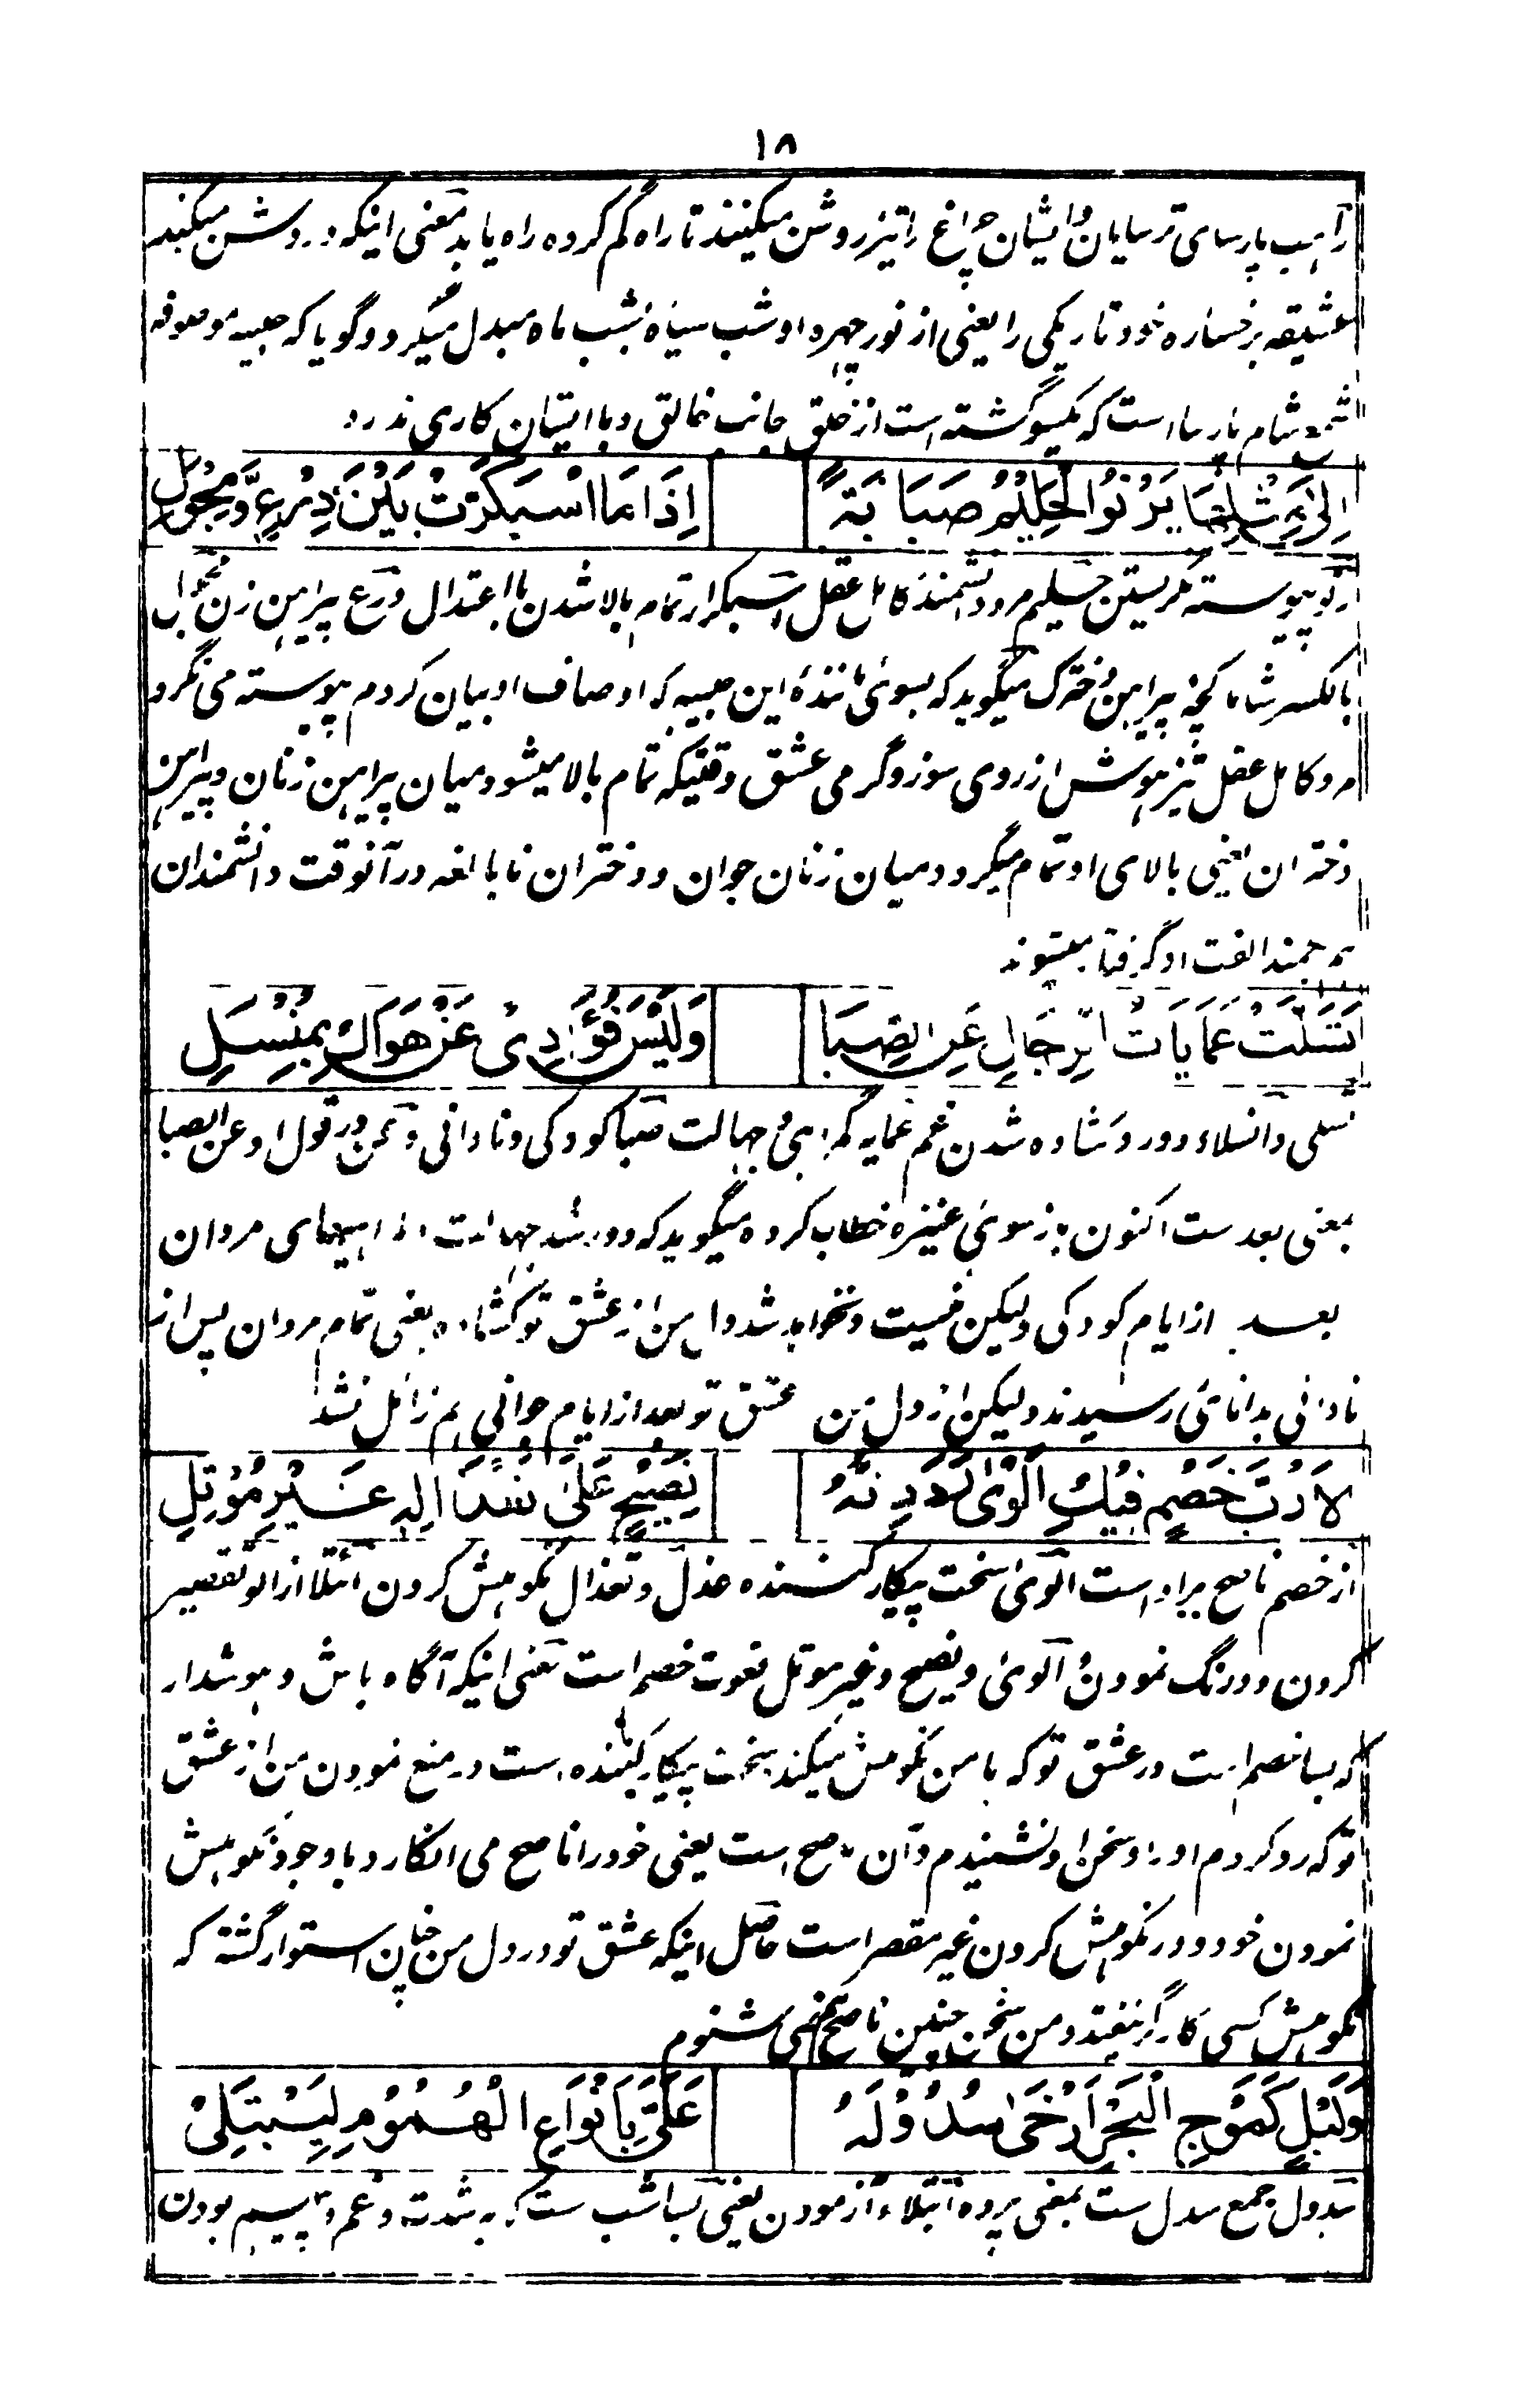 ۱۸
راهب پارسای ترسایان و ایشان چراغ را تیز روشن میکنند تا راه گم کرده راه یابد معنی اینکه در روشن میکند
عشیقه برخساره خود تاریکی را یعنی از نور چهره او شب سیاه بشب ماه مبدل میگردد گویا که حبیبه موصوفه
شمع شام پارسا است که یکسو گشته است از خلق جانب خالق و با ایشان کاری ندارد
اِلٰى مِثْلِهَا يَرْنُوا الْحَلِيْمُ صَبَابَةً
اِذَا مَا اسْبَكَرَّتْ بَيْنَ دِرْعٍ وَّمِجْوَلِ
رنو پیوسته نگریستن حلیم مرد دانشمند کامل عقل اسبکرار تمام بالا شدن با اعتدال درع پیراهن زن مجول
بالکسر شاماکچه پیراهن دخترک میگوید که بسوی مانندهٔ این حبیبه که اوصاف او بیان کردم پیوسته می نگرد
مرد کامل عقل تیز هوش از روی سوز و گرمی عشق وقتیکه تمام بالا میشود میان پیراهن زنان و پیراهن
دختران یعنی بالای او تمام میگردد میان زنان جوان و دختران نابالغه در آنوقت دانشمندان
الفت او گرفتار میشوند
تَسَلَّتْ عَمَايَاتُ الرِّجَالِ عَنِ الصِّبَا
وَلَيْسَ فُؤَادِىْ عَنْ هَوَاكِ بِمُنْسَلِ
تسلی و انسلاء دور و کشاده شدن غم عمایه گمراهی و جهالت صبا کودکی و نادانی و عن در قول او عن الصبا
بمعنی بعد ست اکنون باز سوی عنیزه خطاب کرده میگوید که دور شد جهالت مردان
بعد از ایام کودکی ولیکن نیست و نخواهد شد دل من از عشق تو کشاده یعنی تمام مردان پس از
نادانی بدانائی رسیدند ولیکن از دل من عشق تو بعد از ایام جوانی هم زائل نشد
اَلَا رُبَّ خَصْمٍ فِيْكِ اَلْوٰى رَدَدْتُهُ
نَصِيْحٍ عَلٰى تَعْذَالِهٖ غَيْرِ مُؤْتَلِ
از خصم ناصح مراد است الوی سخت پیکار کننده عذل و تعذال نکوهش کردن ائتلا از الو تقصیر
کردن و درنگ نمودن و الوی و نصیح و غیر موتل نعوت خصم است معنی اینکه آگاه باش و هوشدار
که بسا خصم است در عشق تو که با من نکوهش میکند سخت پیکار کننده است در منع نمودن من از عشق
تو که رد کردم او را و سخن او نشنیدم و آن ناصح است یعنی خود را ناصح می انگارد باوجود نکوهش
نمودن خود و در نکوهش کردن غیر مقصر است حاصل اینکه عشق تو در دل من چنان استوار گشته که
نکوهش کسی کارگر نیفتد و من سخن چنین ناصح نمی شنوم
وَلَيْلٍ كَمَوْجِ الْبَحْرِ اَرْخٰى سُدُوْلَهُ
عَلَيَّ بِاَنْوَاعِ الْهُمُوْمِ لِيَبْتَلِىْ
سدول جمع سدل ست بمعنی پرده ابتلاء آزمودن یعنی بسا شب ست که به شدت و غم و بودن